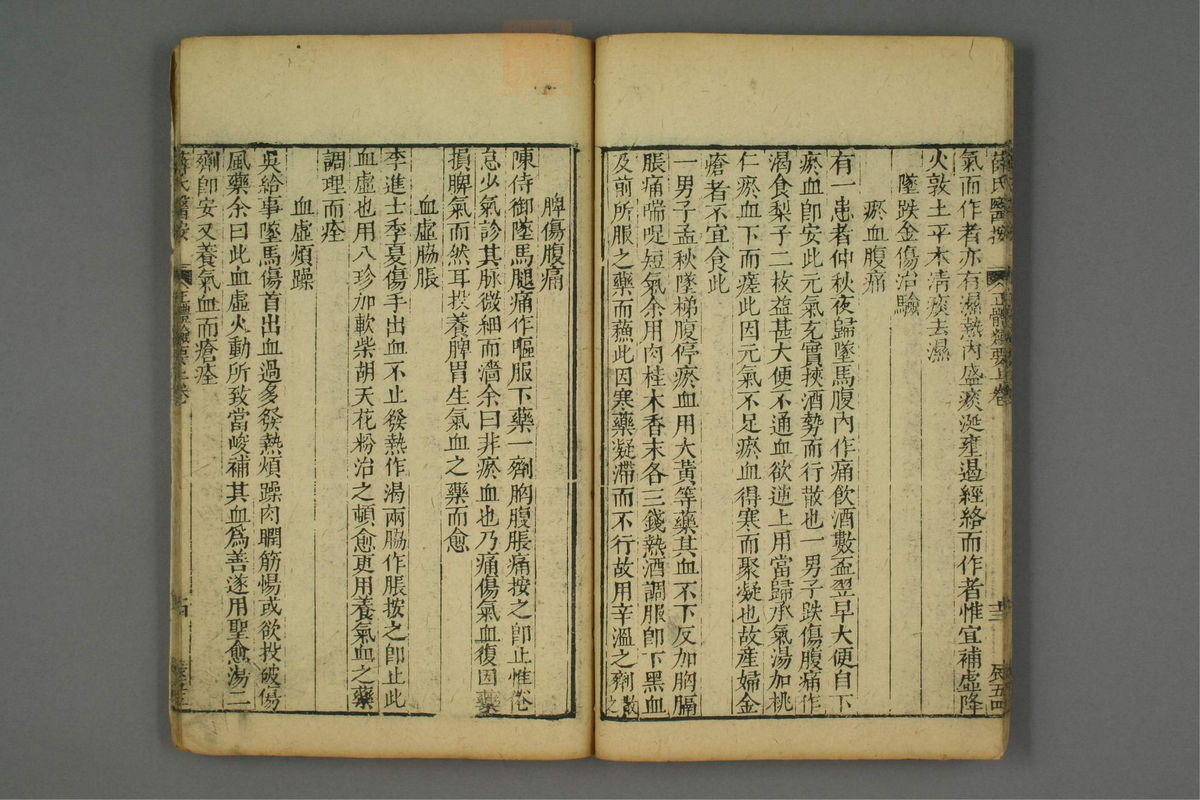 薛氏醫按 正體類要上卷 辰五四
氣而作者亦有濕熱內盛痰涎壅遏經絡而作者惟宜補虛降
火敦土平木清痰去濕
墜跌金傷治驗
瘀血腹痛
有一患者仲秋夜歸墜馬腹內作痛飲酒數盃翌早大便自下
瘀血卽安此元氣充實挾酒勢而行散也一男子跌傷腹痛作
渴食梨子二枚益甚大便不通血欲逆上用當歸承氣湯加桃
仁瘀血下而瘥此因元氣不足瘀血得寒而聚凝也故産婦金
瘡者不宜食此
一男子孟秋墜梯腹停瘀血用大黃等藥其血不下反加胸膈
脹痛喘促短氣余用肉桂木香末各三錢熱酒調服卽下黑血
及前所服之藥而蘓此因寒藥凝滯而不行故用辛溫之劑散之
脾傷腹痛
陳侍御墜馬腿痛作嘔服下藥一劑胸腹脹痛按之卽止惟倦
怠少氣診其脉微細而濇余曰非瘀血也乃痛傷氣血復因藥
損脾氣而然耳投養脾胃生氣血之藥而愈
血虛脇脹
李進士季夏傷手出血不止發熱作渴兩脇作脹按之卽止此
血虛也用八珍加軟柴胡天花粉治之頓愈更用養氣血之藥
調理而痊
血虛煩躁
吳給事墜馬傷首出血過多發熱煩躁肉瞤筋惕或欲投破傷
風藥余曰此血虛火動所致當峻補其血爲善遂用聖愈湯二
劑卽安又養氣血而瘡痊
薛氏醫按 正體類要上卷